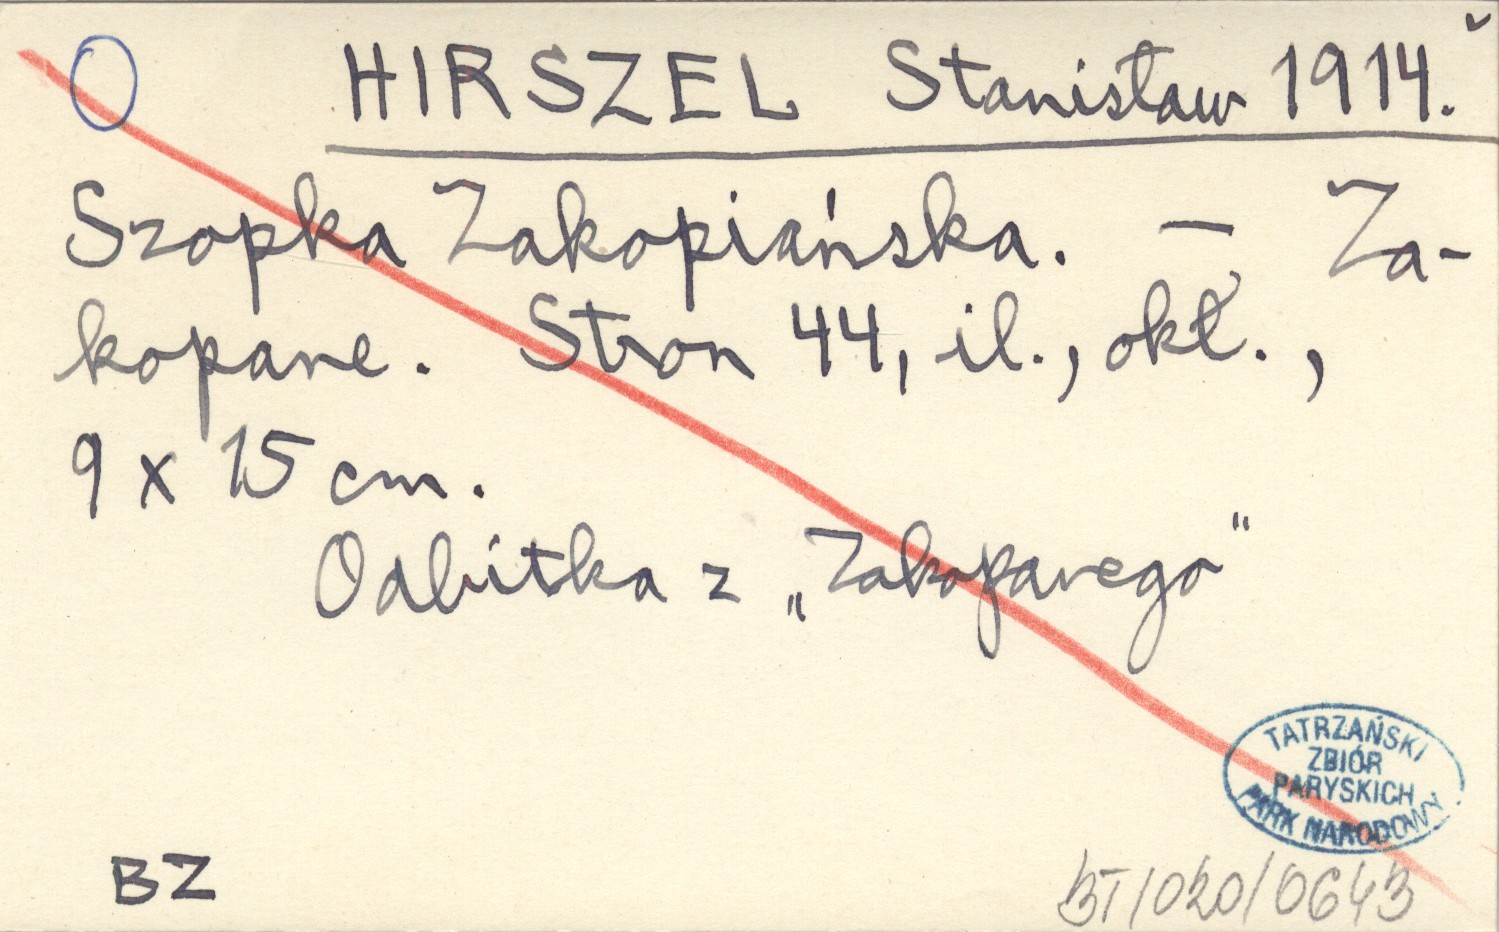 HIRSZEL Stanisław 1914.
Szopka Zakopiańska. — Za-
kopane. Stron 44, il., okł.,
9 x 15 cm.
Odbitka z „Zakopanego"
TATRZAŃSKI
ZBIÓR
PARYSKICH
PARK NARODOWY
BZ
BT/020/0643